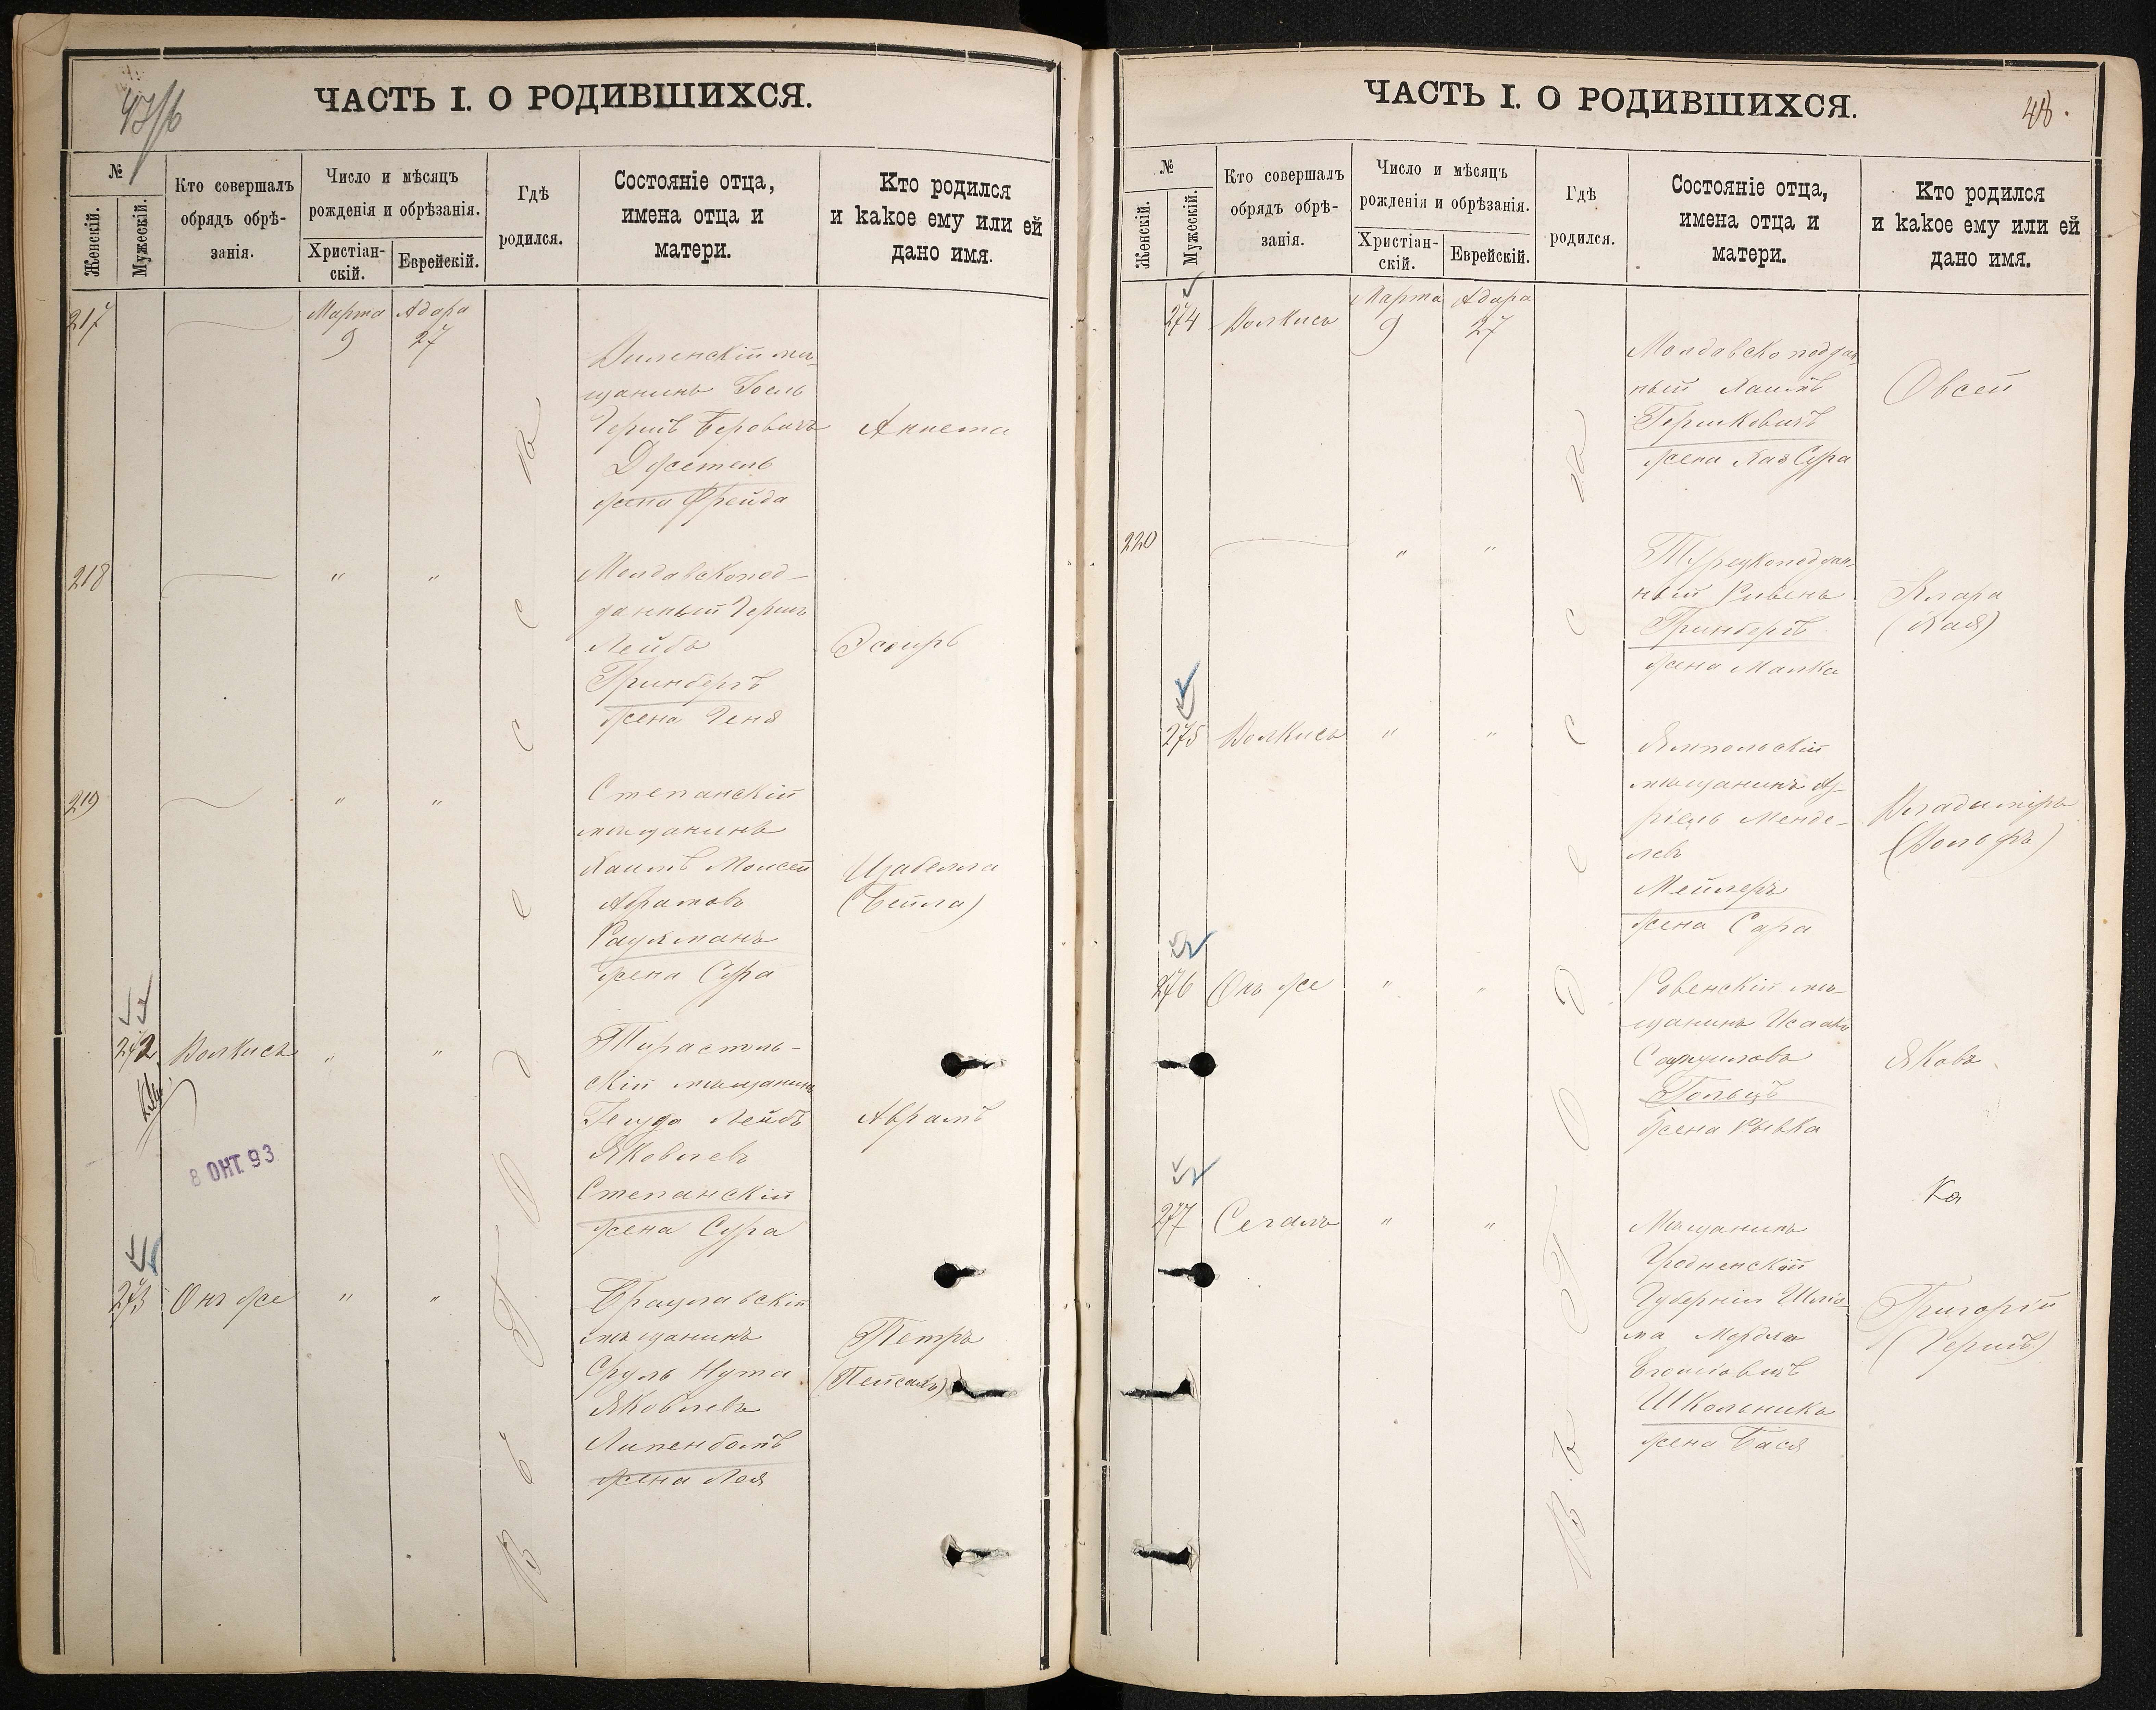 ЧАСТЬ I. О РОДИВШИХСЯ.
№
Женскій.
Мужескій.
Кто совершалъ
обрядъ обрѣ-
занія.
Число и мѣсяцъ
рожденія и обрѣзанія.
Христіан-
скій.
Еврейскій.
Гдѣ
родился.
Состояніе отца,
имена отца и
матери.
Кто родился
и какое ему или ей
дано имя.
217
Марта
9
Адара
27
Виленскій мѣ-
щанинъ Іосль
Гершъ Беровичъ
жена Фрейда
Аннета
218
" "
Молдавскопод-
данный Гершъ
Лейба
Гринбергъ
жена Геня
Эсѳирь
219
" "
Степанскій
мѣщанинъ
Хаимъ Моисей
Абрамовъ
жена Сура
Изабелла
(Бейла)
272
Волкисъ
" "
Тирасполь-
скій мѣщанинъ
Іегуда Лейбъ
Яковлевъ
Степанскій
жена Сура
Абрамъ
8 ОКТ. 93
273
Онъ же
" "
Брацлавскій
мѣщанинъ
Сруль Нута
Яковлевъ
Липенбомъ
жена Лея
Петръ
(Пейсахъ)
Въ Одессѣ
ЧАСТЬ I. О РОДИВШИХСЯ.
48.
№
Женскій.
Мужескій.
Кто совершалъ
обрядъ обрѣ-
занія.
Число и мѣсяцъ
рожденія и обрѣзанія.
Христіан-
скій.
Еврейскій.
Гдѣ
родился.
Состояніе отца,
имена отца и
матери.
Кто родился
и какое ему или ей
дано имя.
274
Волкисъ
Марта
9
Адара
27
Молдавско поддан-
ный Хаимъ
Гершковичъ
жена Хая Сура
Овсей
220
" "
Турецкоподдан-
ный Рувенъ
Гринбергъ
жена Малка
Клара
(Хая)
275
Волкисъ
" "
Ямпольскій
мѣщанинъ Аз-
ріель Менде-
левъ
Мейлеръ
жена Сара
Владиміръ
(Вольфъ)
276
Онъ же
" "
Ровенскій мѣ-
щанинъ Исаакъ
жена Ривка
Яковъ
277
Сегалъ
" "
Мѣщанинъ
Гродненскій
Губерніи Шліо-
ма
Школьникъ
жена Бася
Ка
Григорій
(Гершъ)